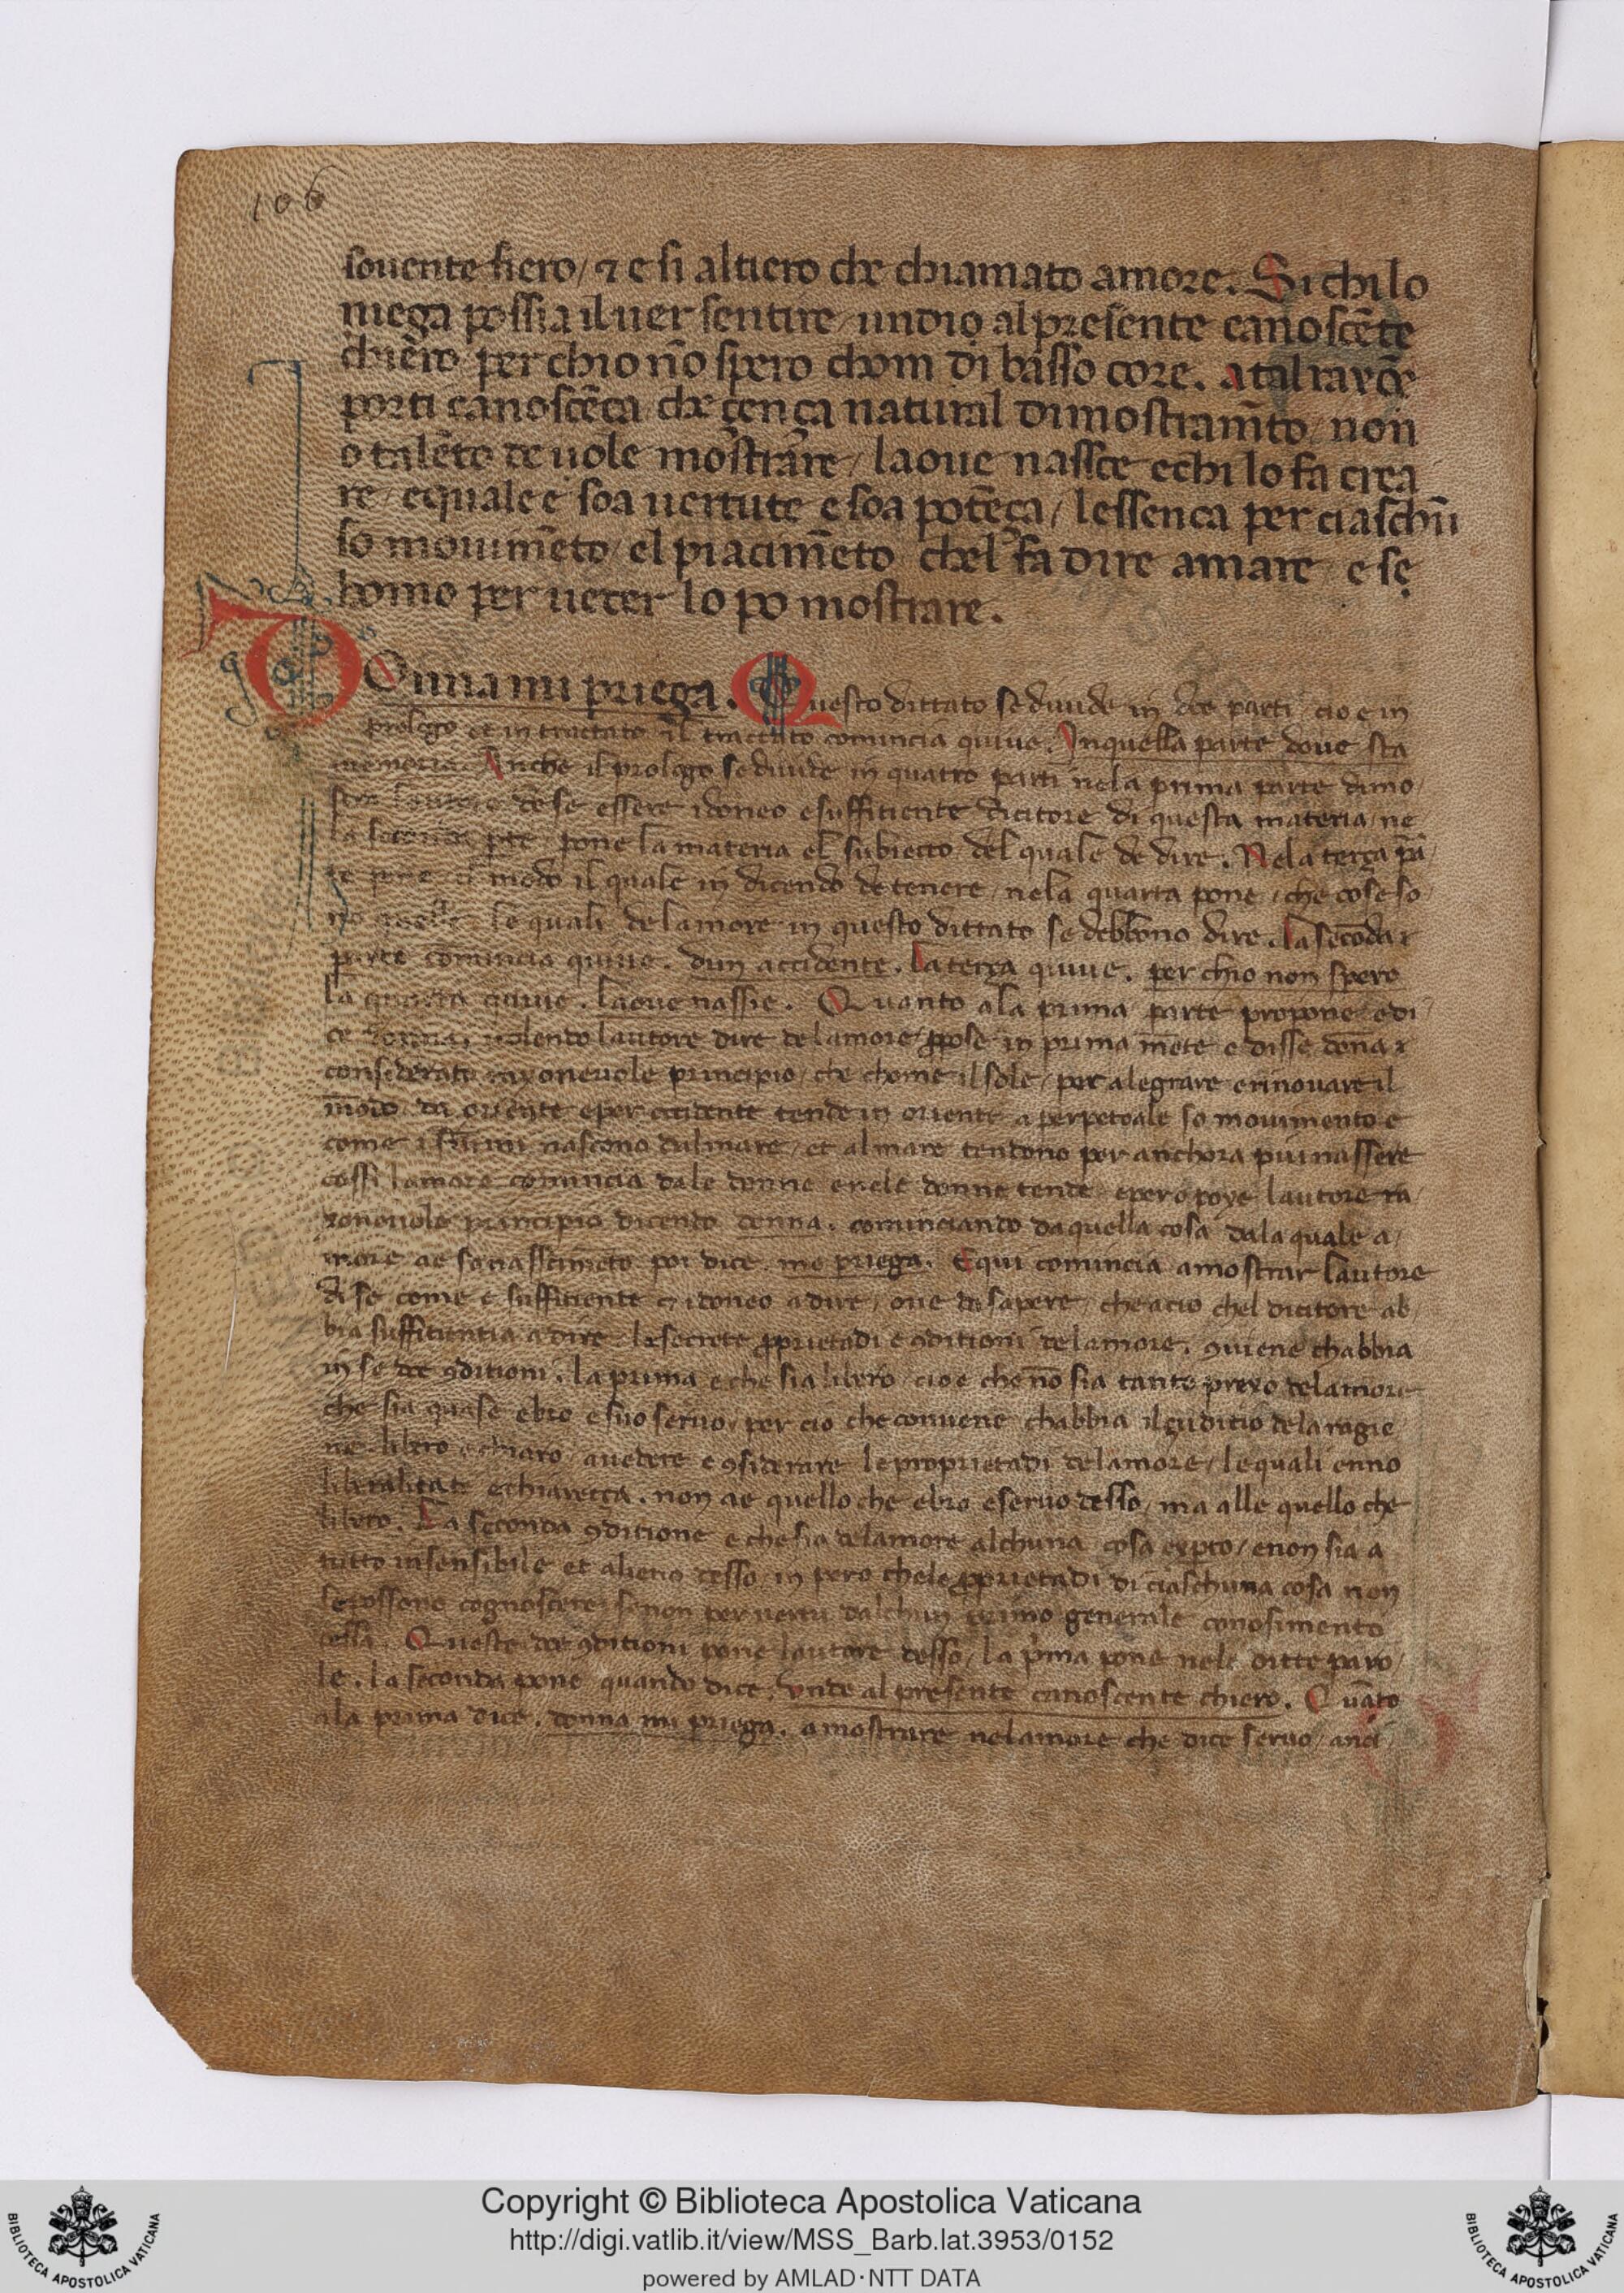 106
souente fiero / ⁊ e si altiero che chiamato amore. Si chi lo
niega possia il uer sentire / undio al presente canoscẽte
chiero per chio nõ spero chom di basso core. a tal rayõe
porti canoscẽça che gença natural dimostram̃to / non
o talẽto de uole mostrare / laoue nassce e chi lo fa crea
re / e quale e soa uertute e soa potẽça / lessenca per ciaschũ
so mouim̃eto / el piacim̃eto chel fa dire amare e se
homo per ueter lo po mostrare.
Donna mi priega. Questo dittato se diuide in doe parti / cio e in
prologo et in tractato il tractato comincia quiue. In quella parte doue sta
memoria. Anche il prologo se diuide in quatro parti nela prima parte dimo/
stra lautore de se essere idoneo e suffitiente dicitore di questa materia / ne
la seconda pte pone la materia el subiecto del quale de dire. Nela terça pa/
te pone el modo il quale in dicendo de tenere / nela quarta pone / che cose so/
no quelle le quali delamore in questo dittato se debbono dire. La secõda
parte comincia quiue. dun accidente. La terça quiue. per chio non spero
la quarta quiue. laoue nassie. Quanto ala prima parte propone e di/
ce donna. uolendo lautore dire delamore ꝓpose in prima m̃ete e disse dõna
considerato rayoneuole principio / che chome il sole / per alegrare e rinouare il
mõdo da oriente e per occidente tende in oriente a perpetoale so mouimento e
come i fiumi nascono dalmare / et al mare tendono per anchora piu nassere
cossi lamore comincia dale donne e nele donne tende e pero poye lautore ra/
xoneuole principio dicendo donna. cominciando da quella cosa dala quale a/
more ae so nassim̃eto poi dice me priega. E qui comincia a mostrar lautore
di se come e suffitiente et idoneo a dire / oue da sapere / che acio chel dicitore ab/
bia suffitientia a dire le secrete ꝓprietadi e ꝯditioni delamore. ꝯuiene chabbia
in se doe ꝯditioni. la prima e che sia libero cio e che nõ sia tanto prexo delamore
che sia quase ebro e suo seruo / per cio che conuene chabbia il guditio dela ragie
ne libero e chiaro / a uedere e ꝯsiderare le proprietadi delamore / le quali enno
liberalitate e chiarecça. non ae quello che ebro e seruo desso / ma alle quello che
libero. La seconda ꝯditione e che sia delamore alchuna cosa exp̃to / e non sia a
tutto insensibile et alieno desso in pero che le ꝓprietadi di ciaschuna cosa non
se possono cognoscere se non per uenir dalchun primo generale conosimento
dessa. Queste doe ꝯditioni pone lautore desso / la p̃ma pone nele ditte paro/
le. la seconda pone quando dice. Unde al presente canoscente chiero. Quãto
ala prima dice. donna mi priega. a mostrare nelamore che dice seruo / anci /
Copyright © Biblioteca Apostolica Vaticana
http://digi.vatlib.it/view/MSS_Barb.lat.3953/0152
powered by AMLAD·NTT DATA
BIBLIOTECA APOSTOLICA VATICANA
BIBLIOTECA APOSTOLICA VATICANA